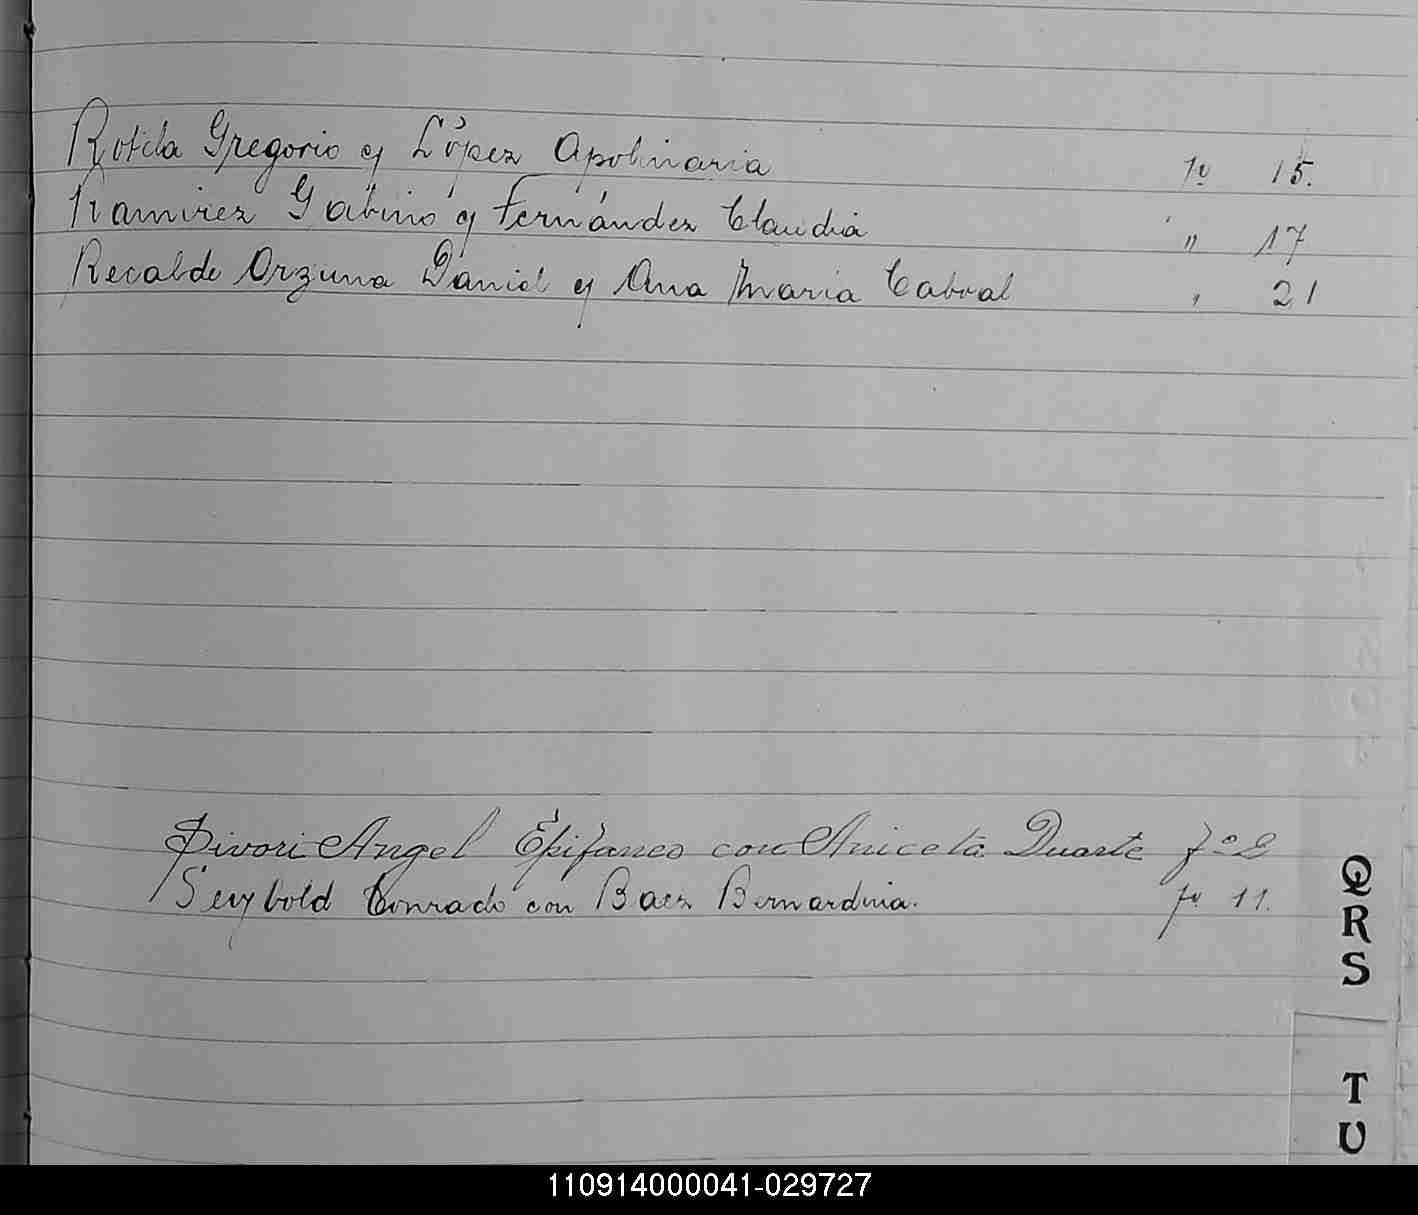 Rotela Gregorio y López Apolinaria fo 15.
Ramirez Gabino y Fernández Claudia " 17
Recalde Orzuna Daniel y Ana Maria Cabral " 21
Sivori Angel Epifaneo con Aniceta Duarte fo 2
Seybold Conrado con Baez Bernardina. fo 11.
Q
R
S
T
U
110914000041-029727